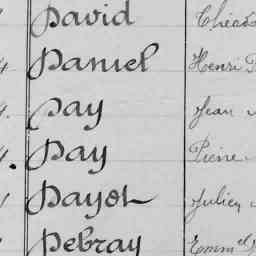 David
Daniel Henri
Day Jean
Day Pierre
Dayot Julien
Debray Emm.el